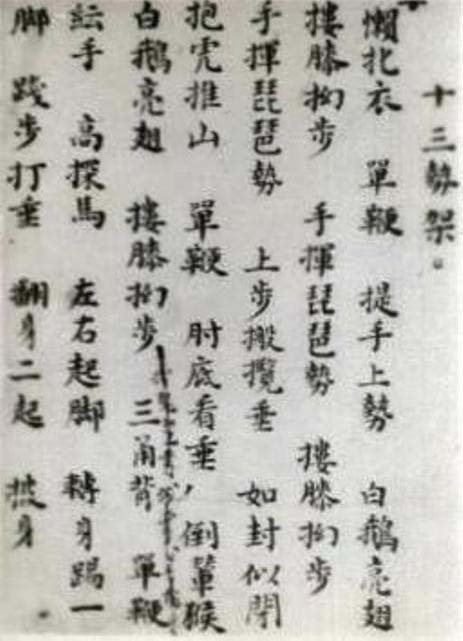 十三勢架。
懶扎衣 單鞭 提手上勢 白鵝亮翅
摟膝拗步 手揮琵琶勢 摟膝拗步
手揮琵琶勢 上步搬攬垂 如封似閉
抱虎推山 單鞭 肘底看垂, 倒輦猴
白鵝亮翅 摟膝拗步 三甬背 單鞭
紜手 高探馬 左右起脚 轉身踢一
脚 踐步打垂 翻身二起 披身